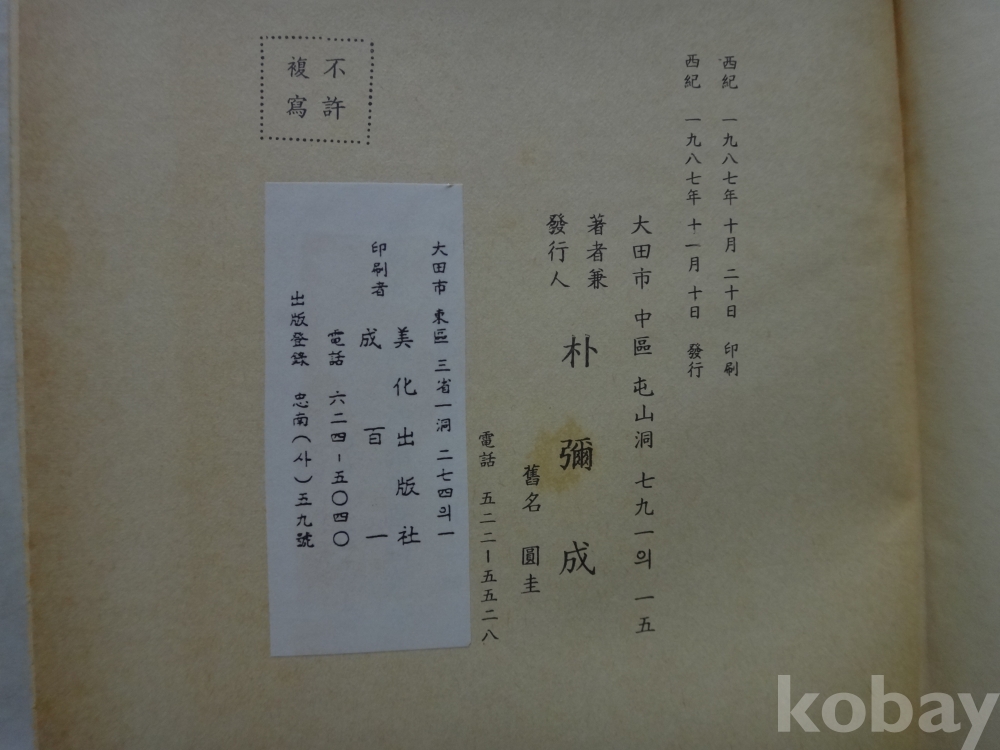 西紀 一九八七年 十月 二十日 印刷
西紀 一九八七年 十一月 十日 發行
大田市 中區 屯山洞 七九一의 一五
著者兼
發行人
朴彌成
舊名 圓圭
電話 五二二ー五五二八
大田市 東區 三省一洞 二七四의一
美化出版社
印刷者 成百一
電話 六二四-五〇四〇
出版登錄 忠南(사)五九號
不許
複寫
kobay